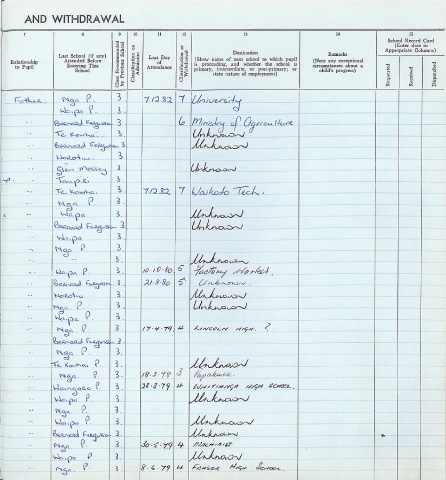 AND WITHDRAWAL
7 8 9 10 11 12 13 14 15
Relationship to Pupil
Last School (if any) Attended Before Entering This School
Class Recommended by Previous School
Classification on Admission
Last Day of Attendance
Classification at Withdrawal
Destination
(Show name of next school to which pupil is proceeding, and whether the school is primary, intermediate, or post-primary; or state nature of employment)
Remarks
(Note any exceptional circumstances about a child's progress)
School Record Card
(Enter date in Appropriate Column)
Requested
Received
Dispatched
Father Nga P. 3 7.12.82 7 University
" Waipa P. 3
" Bernard Ferguson 3 6 Ministry of Agriculture
" Te Kowhai 3 Unknown
" Bernard Ferguson 3 Unknown
" Horotiu 3
" Glen Massey 3 Unknown
" Taupiri 3
" Te Kowhai 3 7.12.82 7 Waikato Tech.
" Nga P 3
" Waipa 3 Unknown
" Bernard Ferguson 3 Unknown
" Waipa 3
" Nga P 3
" " 3 Unknown
" Waipa P 3 10.10.80 5 Factory Market.
" Bernard Ferguson 3 21.8.80 5 Unknown.
" Horotiu 3 Unknown
" Nga P 3 Unknown
" Waipa P. 3
" Nga 3 17.4.79 4 LINCOLN HIGH. ?
" Bernard Ferguson 3
" Nga P. 3
" Te Kowhai P 3 Unknown
" Nga P. 3 18.3.79 3 Papakura.
" Waingaro P 3 28.3.79 4 WHITIANGA HIGH SCHOOL
" Waipa P 3 Unknown
" Nga P. 3
" Waipa P 3 Unknown
" Bernard Ferguson 3 Unknown
" Nga P 3 30.5.79 4
" Waipa P 3 Unknown
" Nga P. 3 8.6.79 4 FRASER HIGH SCHOOL.